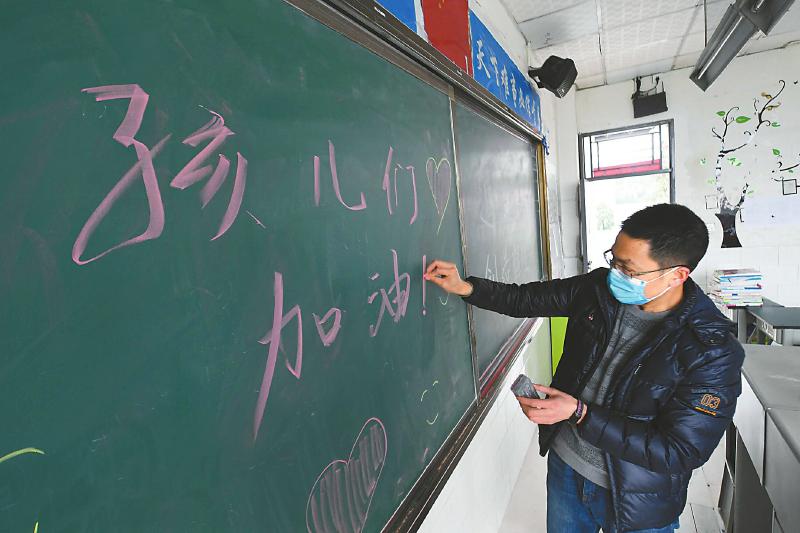 孩儿们
加油!
03